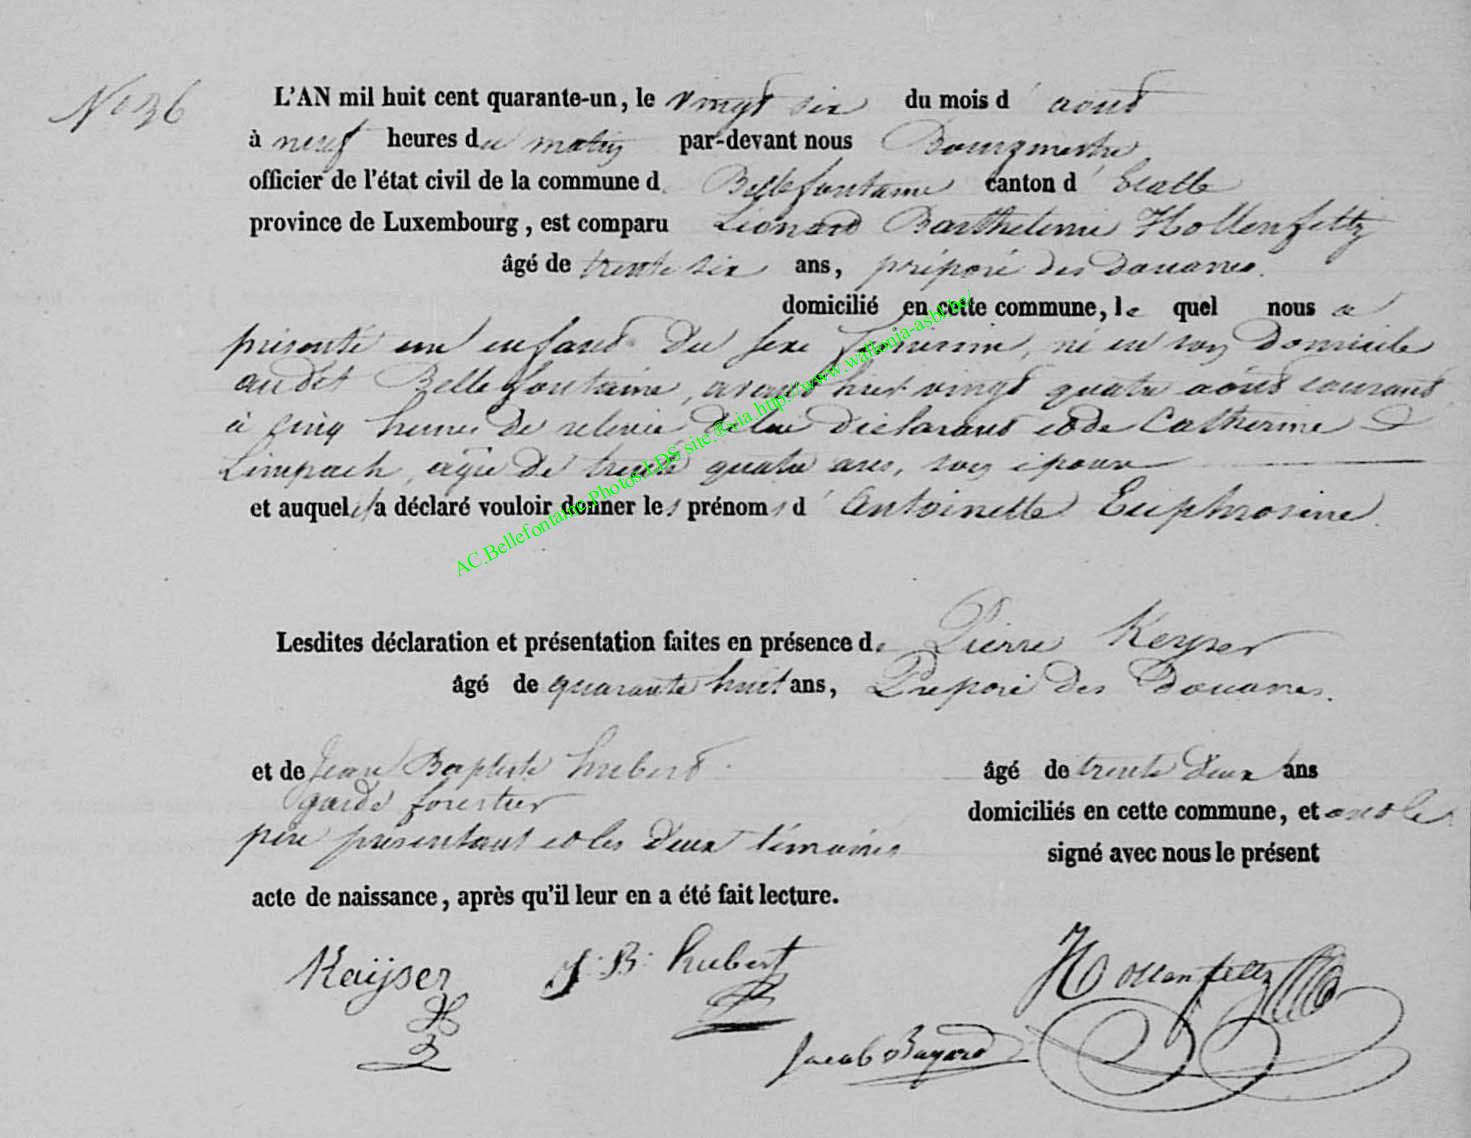 No 36
L'AN mil huit cent quarante-un, le vingt six du mois d' août
à neuf heures du matin par-devant nous Bourgmestre
officier de l'état civil de la commune de Bellefontaine canton d' Etalle
province de Luxembourg, est comparu Léonard Barthelemie Hollenfeltz
âgé de trente six ans, préposé des douanes.
domicilié en cette commune, le quel nous a
présenté un enfant du sexe féminin, né en son domicile
audit Bellefontaine, avant hier vingt quatre août courant
à cinq heures de relevée de lui déclarant et de Catherine
Limpach, agée de trente quatre ans, son épouse
et auquel il a déclaré vouloir donner les prénoms d' Antoinette Euphrosine.
Lesdites déclaration et présentation faites en présence de Pierre Keyser
âgé de quarante huit ans, Préposé des Douanes.
et de Jean Baptiste hubert âgé de trente deux ans
garde forestier domiciliés en cette commune, et ont les
père présentant et les deux témoins signé avec nous le présent
acte de naissance, après qu'il leur en a été fait lecture.
Kaÿser J. B. hubert Hollenfeltz
Jacob Bayard
AC.Bellefontaine.Photos.LDS site.®via http://www.wallonia-asbl.be/